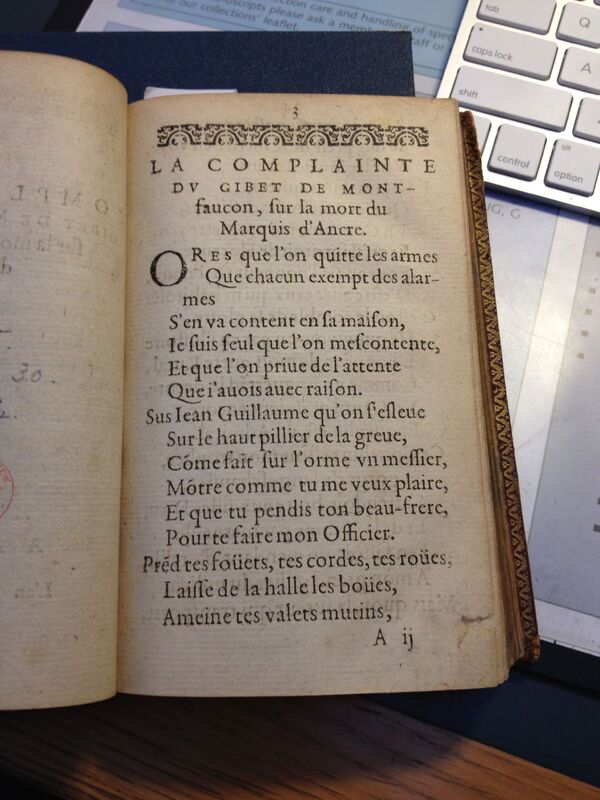 ction care and handling of spec
uscripts please ask a memb
taff or
our collections' leaflet.
tab
Q
caps lock
A
shift
control
alt
option
NG, G
30.
3
LA COMPLAINTE
DV GIBET DE MONT-
faucon, ſur la mort du
Marquis d'Ancre.
ORES que l'on quitte les armes
Que chacun exempt des alar-
mes
S'en va content en ſa maiſon,
Ie ſuis ſeul que l'on meſcontente,
Et que l'on priue de l'attente
Que i'auois auec raiſon.
Sus Iean Guillaume qu'on ſ'eſleue
Sur le haut pillier de la greue,
Cóme fait ſur l'orme vn meſſier,
Mótre comme tu me veux plaire,
Et que tu pendis ton beau-frere,
Pour te faire mon Officier.
Préd tes foüets, tes cordes, tes roües,
Laiſſe de la halle les boües,
Ameine tes valets mutins,
A ij